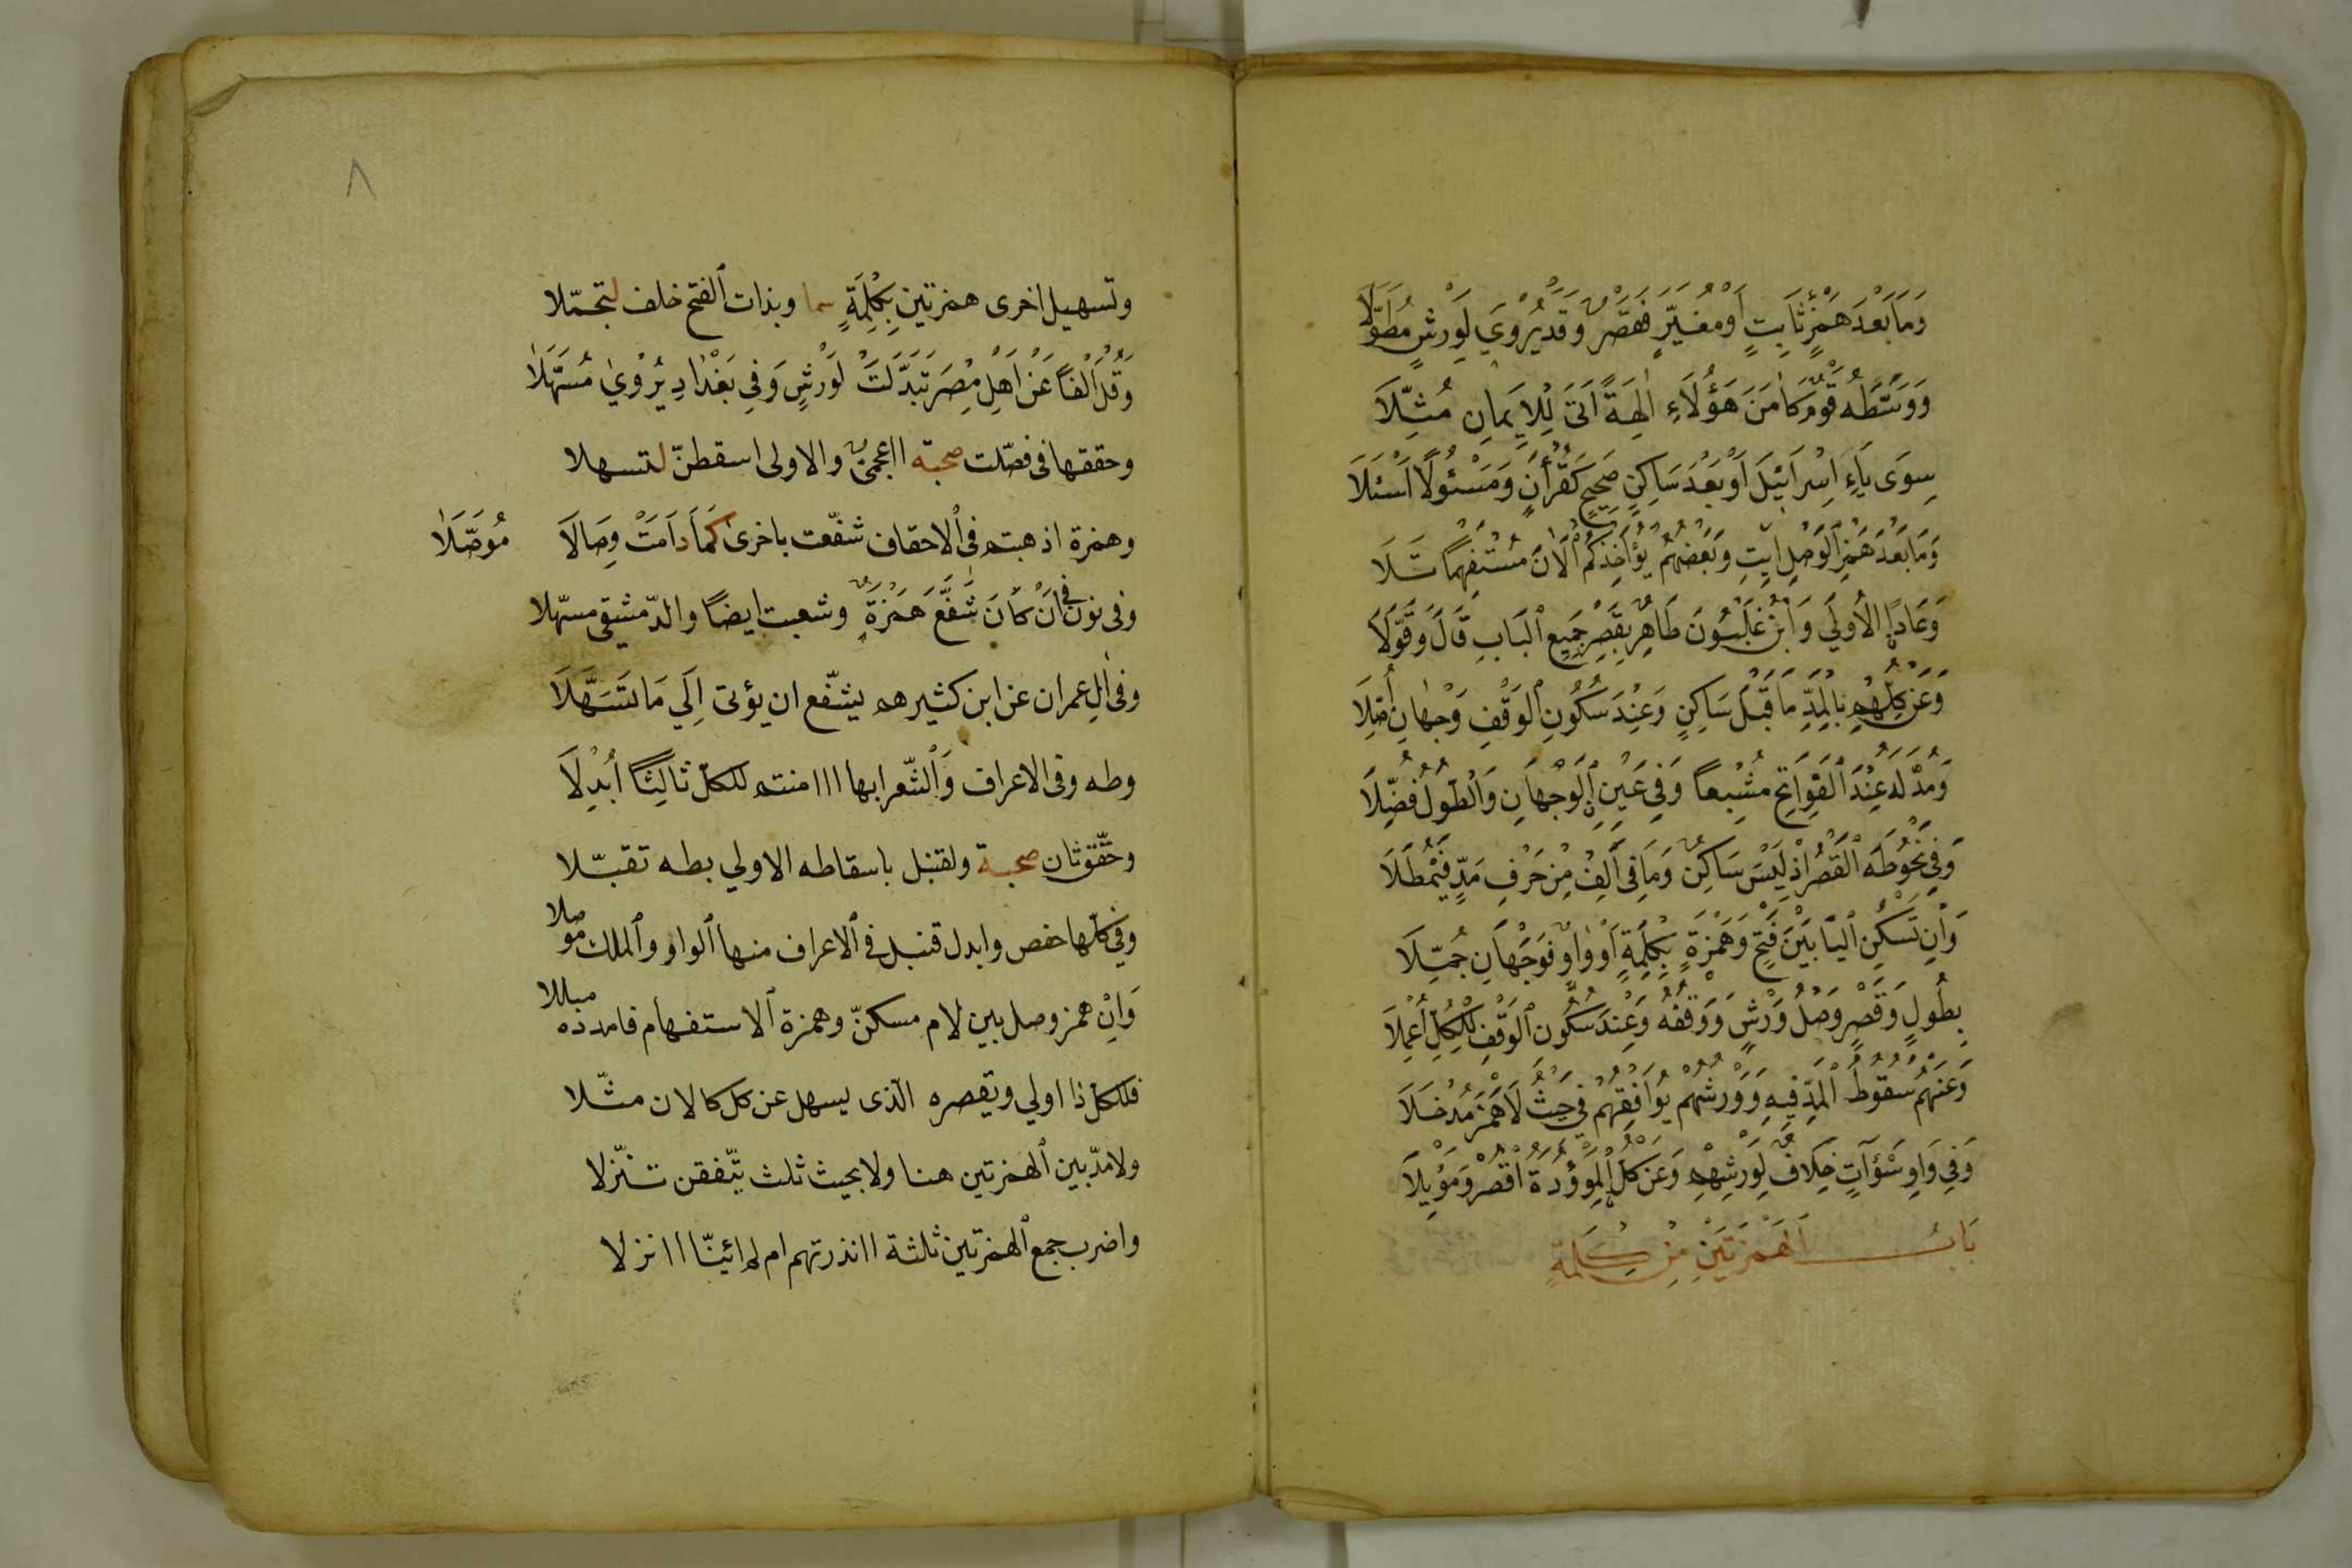 وَمَا بَعْدَ هَمْزٍ ثَابِتٍ اَوْ مُغَيَّرٍ فَقَصْرٌ وَقَدْ يُرْوَي لِوَرْشٍ مُطَوَّلَا
وَوَسَّطَهُ قَوْمٌ كَاٰمَنَ هَؤُلَاءِ اٰلِهَةً اَتَى لِلْاِيمَانِ مُثِّلَا
سِوَى يَاءِ اِسْرَائِيْلَ اَوْ بَعْدَ سَاكِنٍ صَحِيحٍ كَقُرْأٰنٍ وَمَسْئُولًا اسْئَلَا
وَمَا بَعْدَ هَمْزِ الْوَصْلِ ايتِ وَبَعْضُهُمْ يُؤَاخِذُكُمْ اٰلَانَ مُسْتَفْهِمًا تَلَا
وَعَادًا الْاُولَي وَابْنُ غَلْبُونَ طَاهِرٌ بِقَصْرِ جَمِيعِ الْبَابِ قَالَ وَقَوَّلَا
وَعَنْ كُلِّهِمْ بِالْمَدِّ مَا قَبْلَ سَاكِنٍ وَعِنْدَ سُكُونِ الْوَقْفِ وَجْهَانِ اُصِّلَا
وَمُدَّ لَهُ عِنْدَ الْفَوَاتِحِ مُشْبِعاً وَفِي عَيْنٍ الْوَجْهَانِ وَالطُّولُ فُضِّلَا
وَفِي نَحْوِ طٰهَ الْقَصْرُ اِذْ لَيْسَ سَاكِنٌ وَمَا فِى اَلِفْ مِنْ حَرْفِ مَدٍّ فَيُمْطَلَا
وَاِنْ تَسْكُنِ الْيَا بَيْنَ فَتْحٍ وَهَمْزَةٍ بِكِلْمَةٍ اَوْ وَاوٌ فَوَجْهَانِ جُمِّلَا
بِطُولٍ وَقَصْرٍ وَصْلُ وَرْشٍ وَوَقْفُهُ وَعِنْدَ سُكُونِ الْوَقْفِ لِلْكُلِّ اُعْمِلَا
وَعَنْهُمْ سُقُوطُ الْمَدِّ فِيهِ وَوَرْشُهُمْ يُوَافِقُهُمْ فِي حَيْثُ لَا هَمْزَ مُدْخَلَا
وَفِي وَاوِ سَوْآتٍ خِلَافٌ لِوَرْشِهِمْ وَعَنْ كُلٍّ الْمَوْؤُدَةُ اقْصُرْ وَمَوْئِلَا
بَابُ الْهَمْزَتَيْنِ مِنْ كَلِمَةٍ
٨
وتسهيل اخرى همزتين بِكِلْمَةٍ سما وبذات الفتح خلف لتجمّلا
وَقُلْ اَلْفاً عَنْ اَهْلِ مِصْرَ تَبَدَّلَتْ لِوَرْشٍ وَفِي بَغْدَادِ يُرْوٰي مُسَهَّلَا
وحققها فى فصّلت صحبة ااعجمىّ والاولى اسقطنّ لتسهلا
وهمزة اذهبتم فى الاحقاف شفّعت باخرى كَمَا دَامَتْ وِصَالَا
مُوَصَّلَا
وفى نون فى اَنْ كَانَ شَفَّعَ هَمْزَةٌ وشعبت ايضًا والدّمشقى مسهّلا
وفى اٰلِ عمران عن ابن كثيرهم يشفّع ان يؤتى اِلَي مَا تَسَهَّلَا
وطه وفى الاعراف وَالشّعرا بها اا امنتم للكلّ ثَالِثًا اُبْدِلَا
وحقّق ثان صحبة ولقنبل باسقاطه الاولي بطه تقبّلا
وفي كلّها حفص وابدل قنبل فى الاعراف منها الواو والملك موصلا
وَاِنْ همز وصل بين لام مسكّن وهمزة الاستفهام فامدده مبدلا
فللكلّ ذا اولي ويقصره الّذى يسهل عن كل كالان مثّلا
ولا مدّ بين الهمزتين هنا ولا بحيث ثلث يتّفقن تنزّلا
واضرب جمع الهمزتين ثلثة اانذرتهم ام لم ائنّا اانزلا